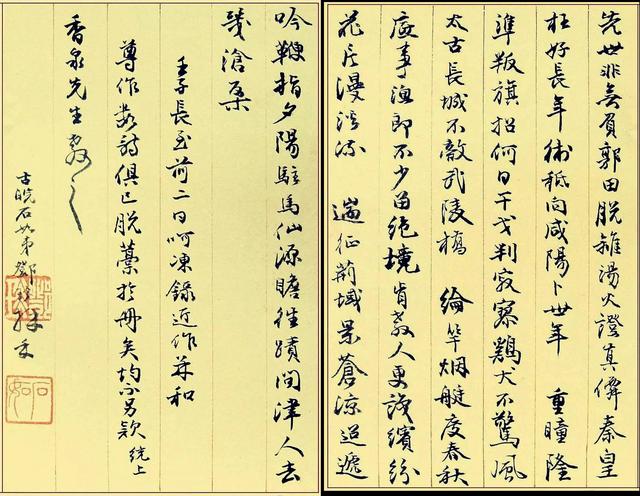 先世非無負郭田脫離湯火證真僊秦皇
枉好長年術祗向咸陽卜世年 重瞳隆
準叛旗招何日干戈判寂寥鷄犬不驚風
太古長城不敵武陵橋 綸竿烟艇度春秋
底事漁郎不少留絕境肯教人更識繽紛
花片漫溪流 遄征荊域景蒼涼迢遞
吟鞭指夕陽駐馬仙源瞻往蹟問津人去
幾滄桑
壬子長至前二日呵凍錄近作并和
尊作數詩俱已脫藁於冊矣均不另款 統上
香泉先生教之
古皖石如弟鄧
石如